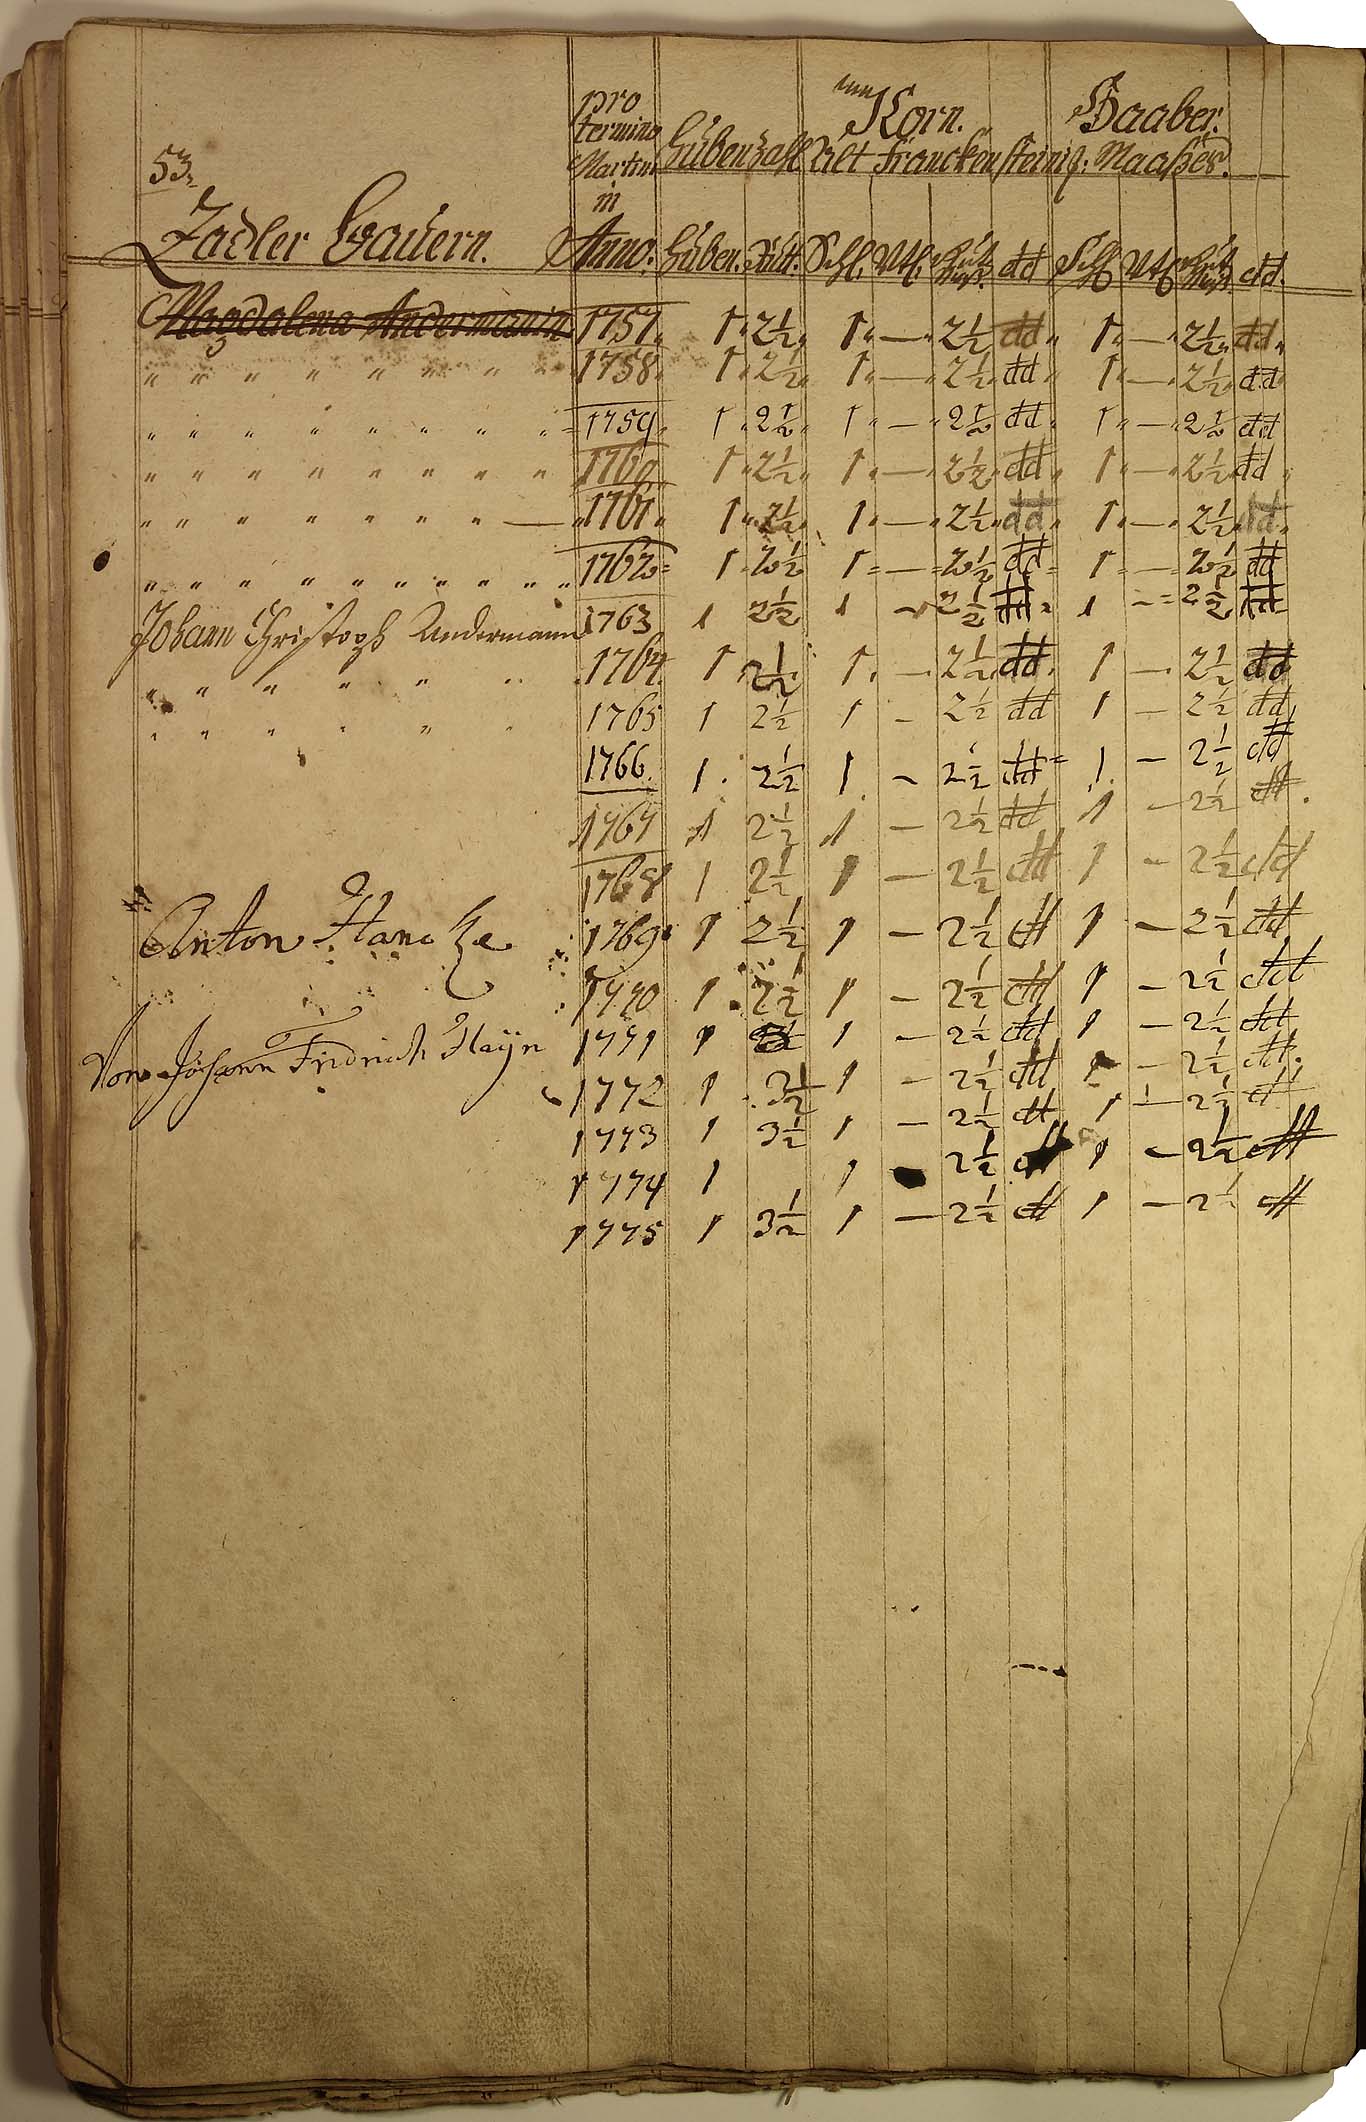 53.
pro termino Martini in Anno.
Korn. Haaber.
Hubenzahl Alt Franckensteinig: Maaßes.
Zadler Bauern.
Huben. Rutt. Schl. Vtl. dd Schl Vtl dd.
Magdalena Andermanin 1757 1 2½ 1 — 2½ dd 1 — 2½ dd
" " " " " " " " 1758 1 2½ 1 — 2½ dd 1 — 2½ dd
" " " " " " " " 1759 1 2½ 1 — 2½ dd 1 — 2½ dd
" " " " " " " " 1760 1 2½ 1 — 2½ dd 1 — 2½ dd
" " " " " " " — 1761 1 2½ 1 — 2½ dd 1 — 2½ dd
" " " " " " " " " " 1762 1 2½ 1 — 2½ dd 1 — 2½ dd
Johann Christoph Andermann 1763 1 2½ 1 — 2½ dd 1 — 2½ dd
" " " " " " 1764 1 2½ 1 — 2½ dd 1 — 2½ dd
" " " " " " 1765 1 2½ 1 — 2½ dd 1 — 2½ dd
1766 1 2½ 1 — 2½ dd 1 — 2½ dd
1767 1 2½ 1 — 2½ dd 1 — 2½ dd
1768 1 2½ 1 — 2½ dd 1 — 2½ dd
Anton Hancke 1769 1 2½ 1 — 2½ dd 1 — 2½ dd
1770 1 2½ 1 — 2½ dd 1 — 2½ dd
Von Johann Fridrich Hayn 1771 1 1 — 2½ dd 1 — 2½ dd
1772 1 3½ 1 — 2½ dd 1 — 2½ dd
1773 1 3½ 1 — 2½ dd 1 — 2½ dd
1774 1 1 2½ dd 1 — 2½ dd
1775 1 3½ 1 — 2½ dd 1 — 2½ dd